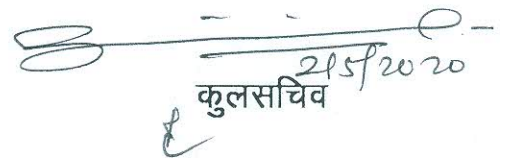 2/5/2020
कुलसचिव